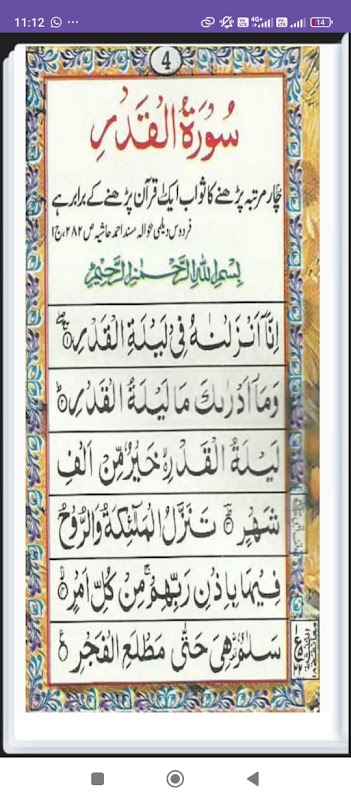 11:12
4G+
14
4
سُوْرَةُ الْقَدْرِ
چار مرتبہ پڑھنے کا ثواب ایک قرآن پڑھنے کے برابر ہے
فردوس دیلمی بحوالہ مسند احمد حاشیہ ص ۲۸۲، ج۱
بِسْمِ اللّٰهِ الرَّحْمٰنِ الرَّحِيْمِ
اِنَّاۤ اَنْزَلْنٰهُ فِیْ لَيْلَةِ الْقَدْرِ ۚۖ
وَمَاۤ اَدْرٰىكَ مَا لَيْلَةُ الْقَدْرِ ؕ
لَيْلَةُ الْقَدْرِ ۙ خَيْرٌ مِّنْ اَلْفِ
شَهْرٍ ؕ تَنَزَّلُ الْمَلٰٓئِكَةُ وَالرُّوْحُ
فِيْهَا بِاِذْنِ رَبِّهِمْ ۚ مِنْ كُلِّ اَمْرٍ ۙ
سَلٰمٌ ۛ هِیَ حَتّٰى مَطْلَعِ الْفَجْرِ